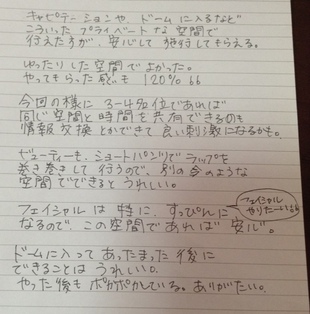 キャビテーションや、ドームに入るなど
こういった プライベートな空間で
行えた方が、安心して 施行してもらえる。
ゆったりした空間でよかった。
やってもらった感も 120%
今回の様に 3~4名位であれば
同じ空間と時間を共有できるのも
情報交換とかできて良い刺激になるかも。
ビューティーも、ショートパンツでラップを
巻き巻きして行うので、別の会のような
空間でできるとうれしい。
フェイシャルは特に、すっぴんに
フェイシャル
やりたーい
なるので、この空間であれば安心。
ドームに入ってあったまった後に
できることは うれしい。
やった後も ポカポカしている。ありがたい。